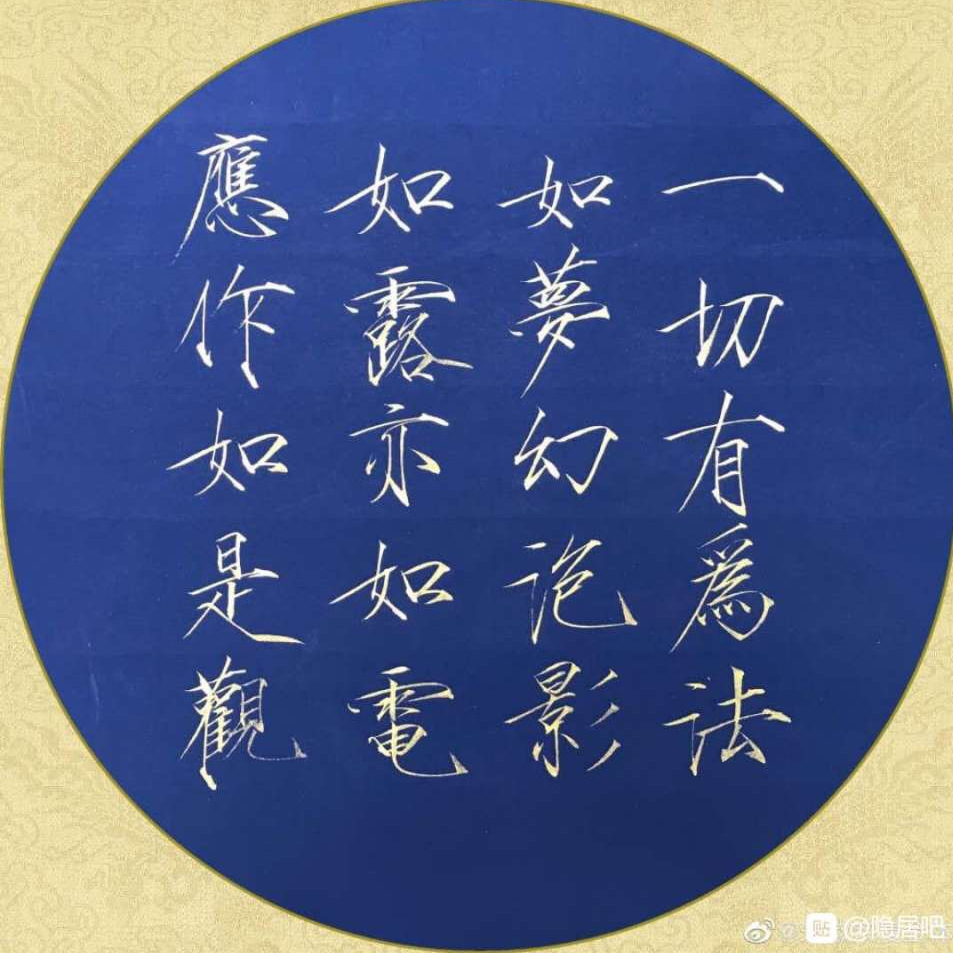 一切有爲法
如夢幻泡影
如露亦如電
應作如是觀
贴 @隐居吧